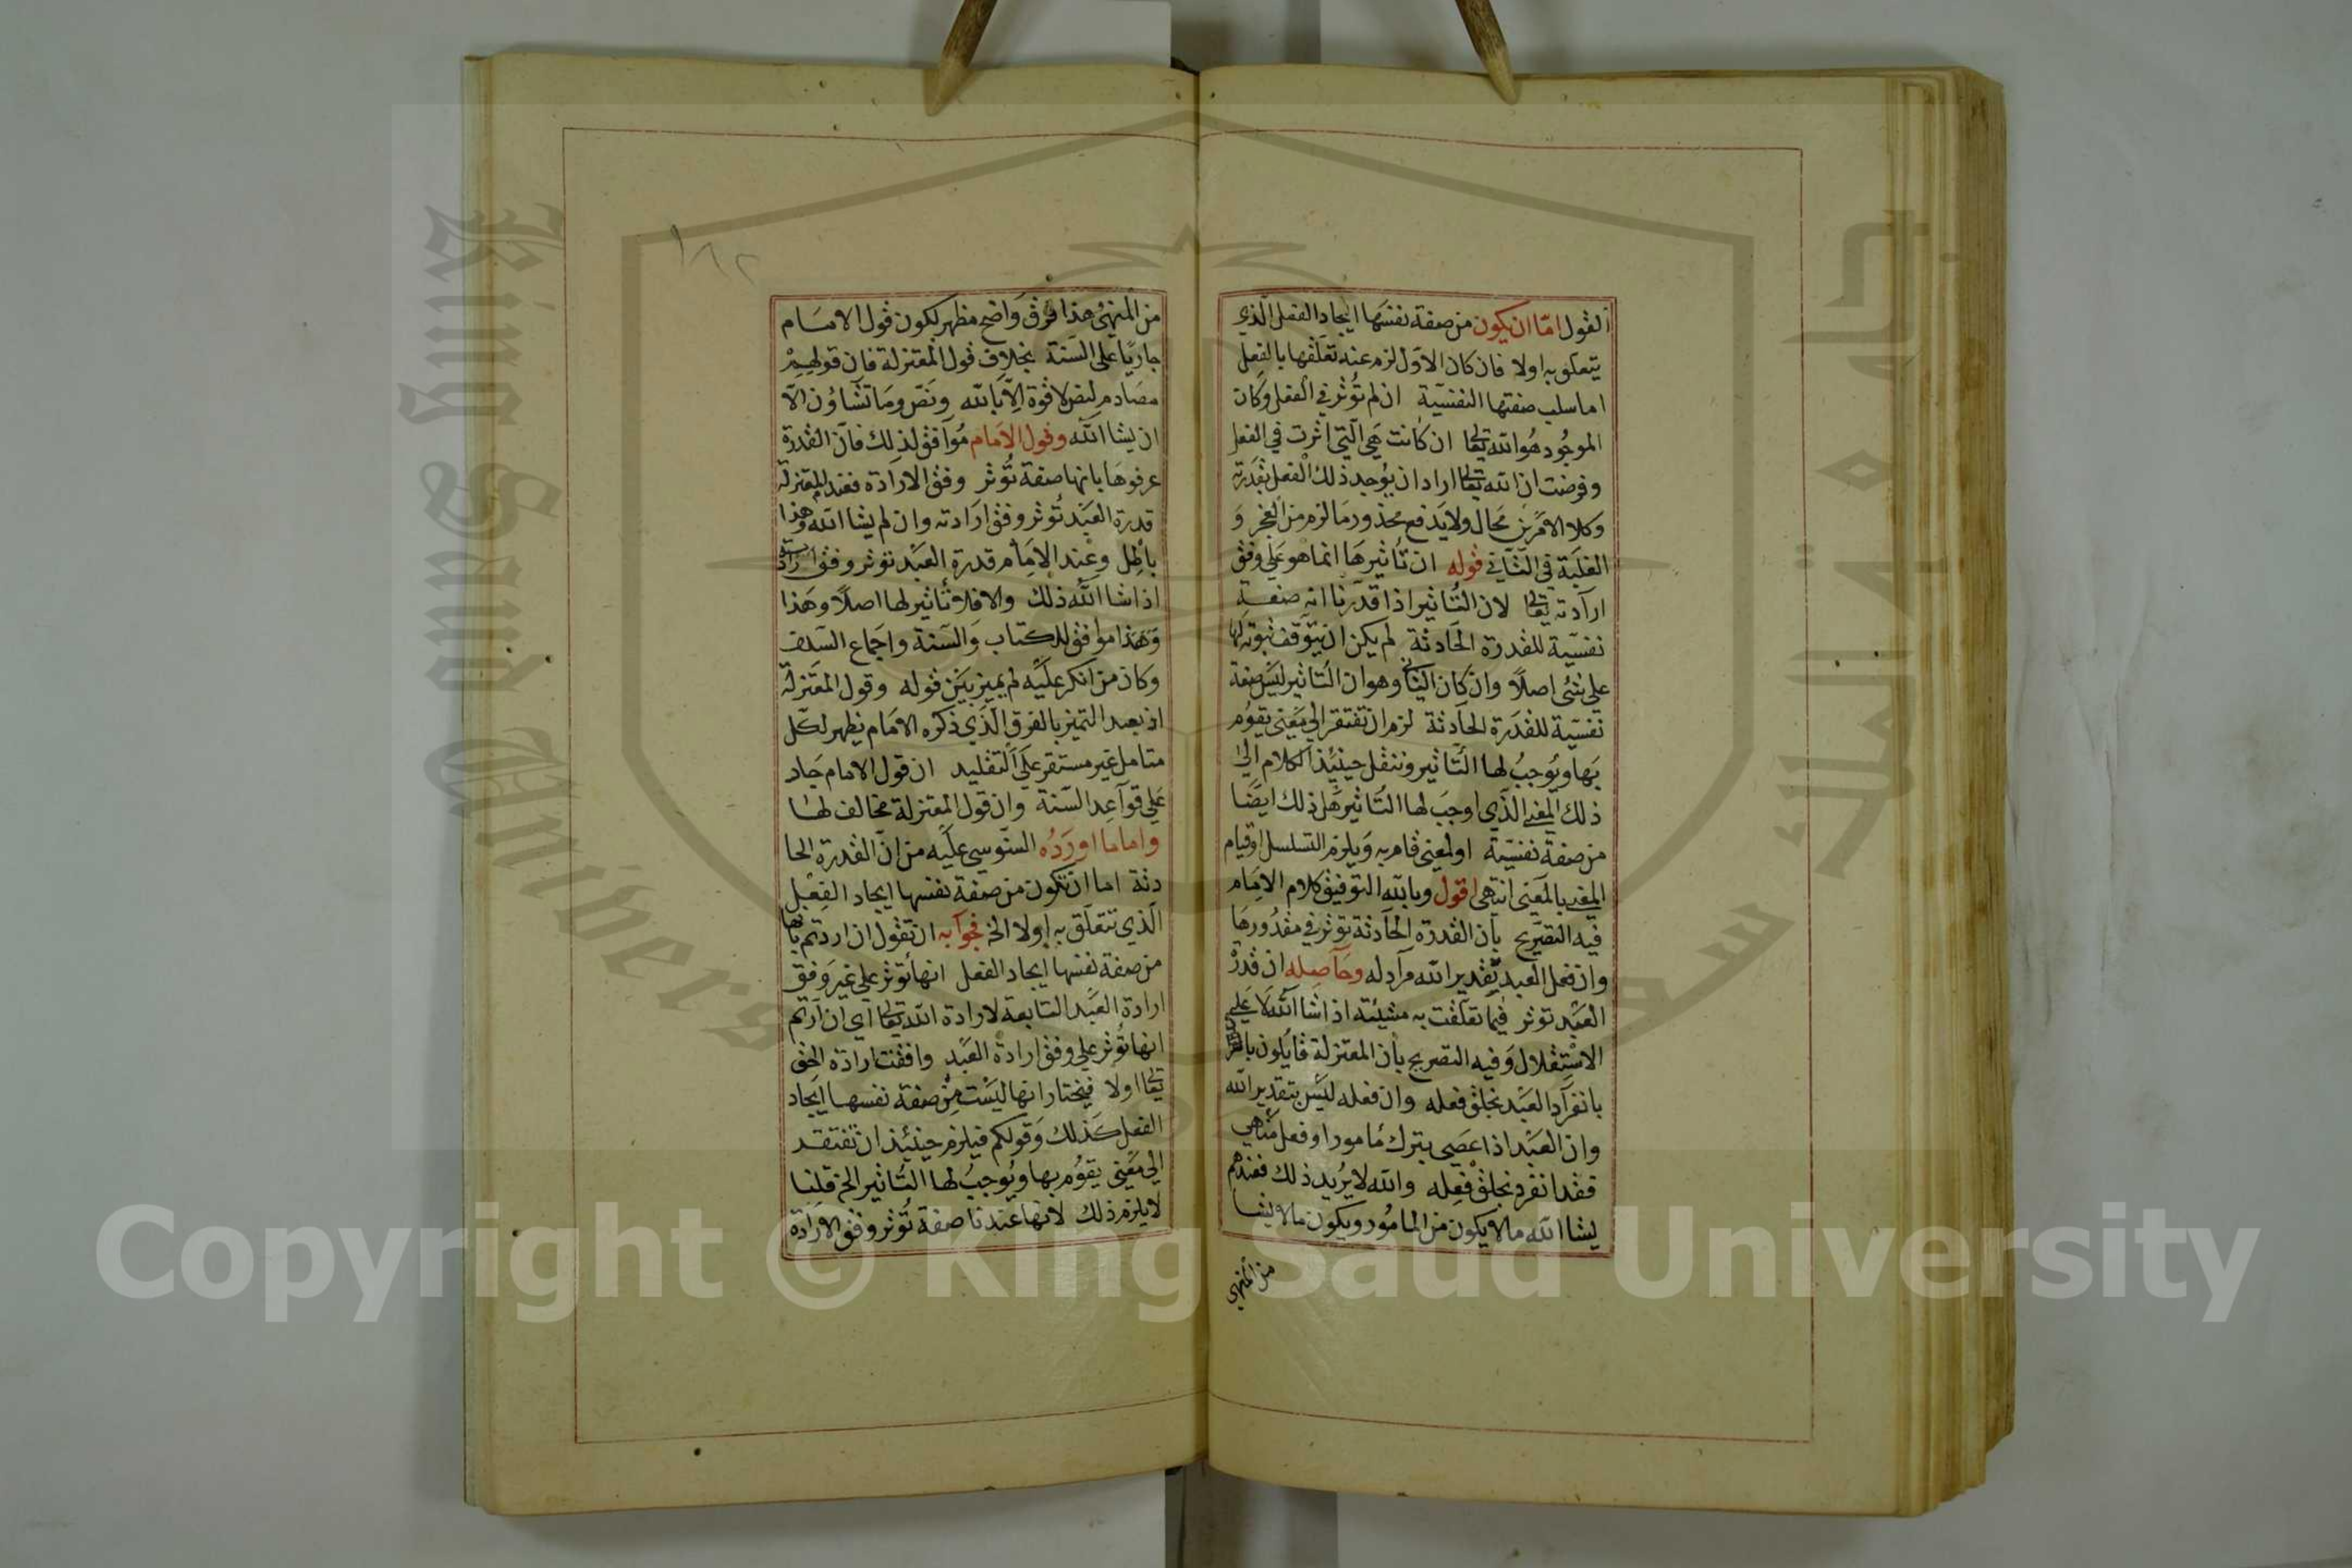 القول اما ان يكون من صفة نفسها ايجاد الفعل الذي
يتعلق به اولا فان كان الاول لزم عند تعلقها بالفعل
اما سلب صفتها النفسية ان لم تؤثر في الفعل وكان
الموجود هو الله تعالى ان كانت هي التي اثرت في الفعل
وفرضت ان الله تعالى اراد ان يوجد ذلك الفعل بقدرته
وكلا الامرين محال ولا يدفع محذور ما لزم من العجز و
الغلبة في الثاني قوله ان تاثيرها انما هو على وفق
ارادته تعالى لان التاثير اذا قدرنا انه صفة
نفسية للقدرة الحادثة لم يكن ان يتوقف ثبوته لها
على شئ اصلا وان كان الثاني وهو ان التاثير ليس صفة
نفسية للقدرة الحادثة لزم ان تفتقر الى معنى يقوم
بها ويوجب لها التاثير وننقل حينئذ الكلام الى
ذلك المعنى الذي اوجب لها التاثير هل ذلك ايضا
من صفة نفسية او لمعنى قام به ويلزم التسلسل او قيام
المعنى بالمعنى انتهى اقول وبالله التوفيق كلام الامام
فيه التصريح بان القدرة الحادثة تؤثر في مقدورها
وان فعل العبد بتقدير الله مراد له وحاصله ان قدرة
العبد تؤثر فيما تعلقت به مشيئته اذا شا الله لا على
الاستقلال وفيه التصريح بان المعتزلة قايلون
بانفراد العبد بخلق فعله وان فعله ليس بتقدير الله
وان العبد اذا عصى بترك مامور او فعل مناهي
فقد انفرد بخلق فعله والله لا يريد ذلك فعندهم
يشا الله ما لا يكون من المامور ويكون ما لا يشا
من المنهي
١٨٢
من المنهي هذا فرق واضح مظهر لكون قول الامام
جاريا على السنة بخلاف قول المعتزلة فان قولهم
مصادم لنص لا قوة الا بالله ونص وما تشاؤن الا
ان يشا الله وقول الامام موافق لذلك فان القدرة
عرفوها بانها صفة تؤثر وفق الارادة فعند المعتزلة
قدرة العبد تؤثر وفق ارادته وان لم يشا الله وهذا
باطل وعند الامام قدرة العبد تؤثر وفق ارادته
اذا شا الله ذلك والا فلا تأثير لها اصلا وهذا
وهذا موافق للكتاب والسنة واجماع السلف
وكان من انكر عليه لم يميز بين قوله وقول المعتزلة
اذ بعد التميز بالفرق الذي ذكره الامام يظهر لكل
متامل غير مستقر على التقليد ان قول الامام جاد
على قواعد السنة وان قول المعتزلة مخالف لها
واما ما اورده السنوسي عليه من ان القدرة الحا
دثة اما ان تكون من صفة نفسها ايجاد الفعل
الذي تتعلق به اولا الخ فجوابه ان تقول ان اردتم بانها
من صفة نفسها ايجاد الفعل انها تؤثر على غير وفق
ارادة العبد التابعة لارادة الله تعالى اي ان اردتم
انها تؤثر على وفق ارادة العبد وافقت ارادة الحق
تعالى اولا فيختار انها ليست من صفة نفسها ايجاد
الفعل كذلك وقولكم فيلزم حينئذ ان تفتقد
الى معنى يقوم بها ويوجب لها التاثير الخ قلنا
لا يلزم ذلك لانها عندنا صفة تؤثر وفق الارادة
King Saud University
Copyright © King Saud University